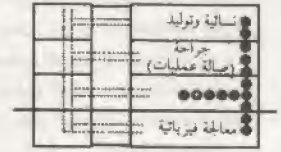 نسائية وتوليد
جراحة
(صالة عمليات)
معالجة فيزيائية